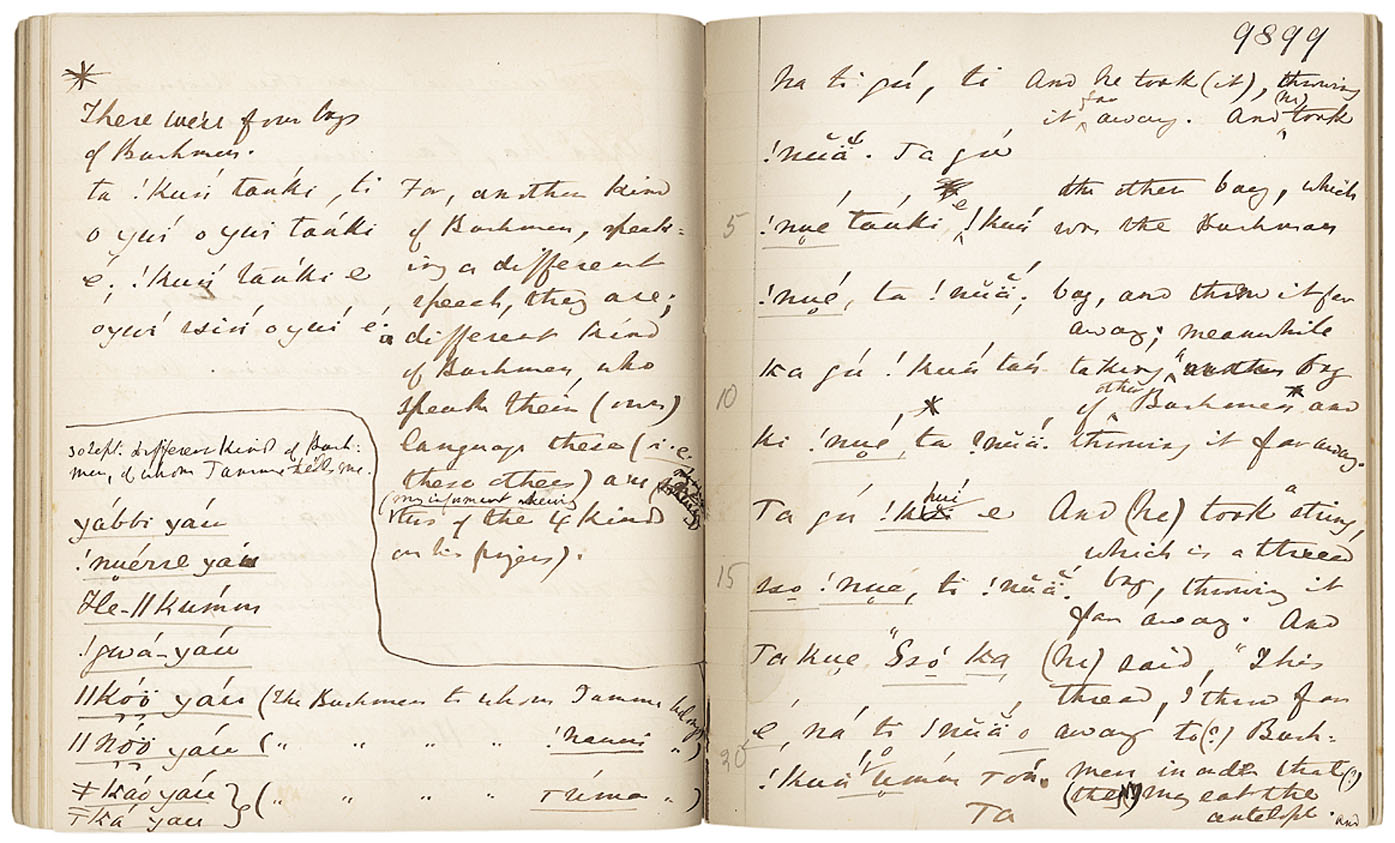 *
There were four bags
of Bushmen.
ta !kuń tańki, ti For, another kind
o yuí o yuí tańki of Bushmen, speak=
é; !kuń tańki e ing a different
speech, they are;
oyuí ssiń oyuí é. different kind
of Bushmen, who
speak their (ones)
language these (i.e.
these others) are
(my informant showing
this of the 4 kind
on his fingers).
30 Sept. Different kind of Bush=
men, of whom Tamme tells me.
yábbi yáu
!nuérre yáu
He-||kúmm
!gwá-yáu
||kóö yáu (the Bushmen to whom Tamme belongs)
||nóö yáu (" " " " !nanni ")
ǂkáo yáu } (" " " " Túma ")
ǂká yáu
9899
ha ti gú, ti And he took (it), throwing
it far away. And (he) took
!nŭä̆. Ta gú
the other bag, which
5 !nu̥é tańki e !kuń was the Bushman
!nu̥é, ta !nŭä̆; bag, and threw it far
away; meanwhile
ka gú !kuń tań taking another bag
10 of other Bushmen * and
ki !nu̥é, ta !nŭä̆. throwing it far away.
Ta gú !huí e And (he) took a string,
which is a thread
15 sso !nu̥é, ti !nŭä̆. bag, throwing it
far away. And
Ta kue "Ssó ka (he) said, "This
thread, I throw far
é, ná ti !nŭä̆ o away to (?) Bush=
20 !kuń u̥ḿm Toń. men in order that (?)
(they) may eat the
Ta antelope. and